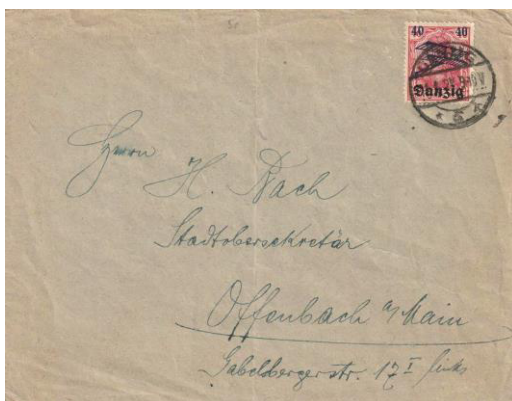 40 40
Danzig
Herrn
H. Bach
Stadtobersekretär
Offenbach a/Main
Gabelsbergerstr. 17 I links